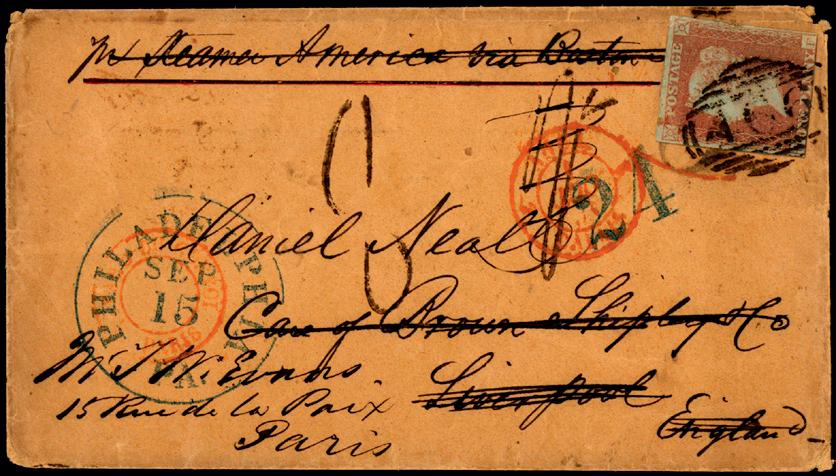 pr Steamer America via Boston
POSTAGE
24
Daniel Neall
PHILADELPHIA
SEP
15
PA.
Care of Brown Shipley & Co
Liverpool
England
Mr T. W. Evans
15 Rue de la Paix
Paris